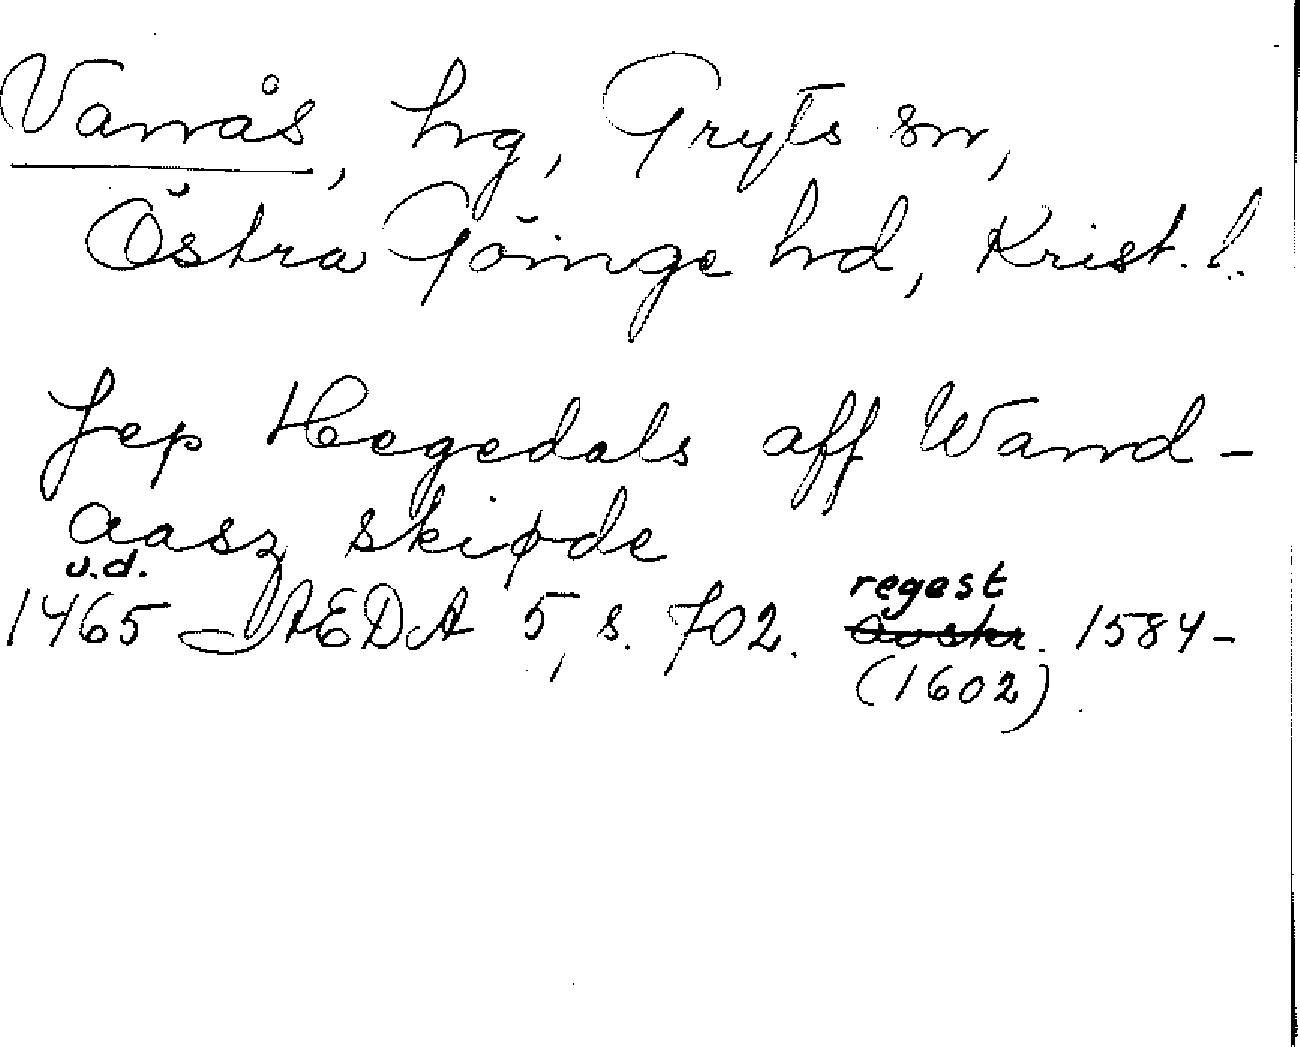 Vanås, hg, Gryts sn,
Östra Göinge hd, Krist. l.
Jep Hegedals aff Wand-
aasz skiøde
u.d.
regest
1465 ÆDA 5, s. 702. Avskr. 1584-
(1602)